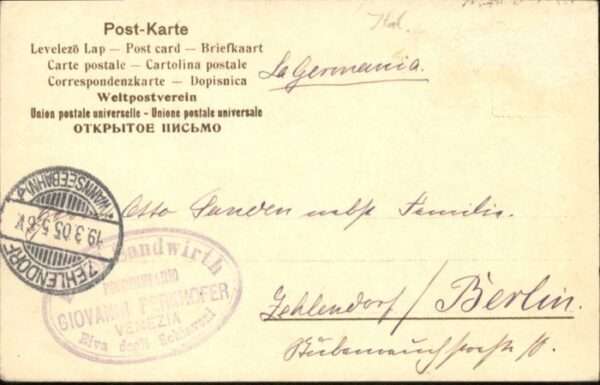 Post-Karte
Levelező Lap — Post card — Briefkaart
Carte postale — Cartolina postale
Correspondenzkarte — Dopisnica
Weltpostverein
Union postale universelle - Unione postale universale
ОТКРЫТОЕ ПИСЬМО
Ital.
La Germania.
WANNSEEBAHN
19.3.05.5-6V.
ZEHLENDORF
Otto Sanden nebst Familie.
Landwirth
GIOVANNI PERKHOFER
VENEZIA
Riva degli Schiavoni
Zehlendorf / Berlin.
Stubenrauchstraße